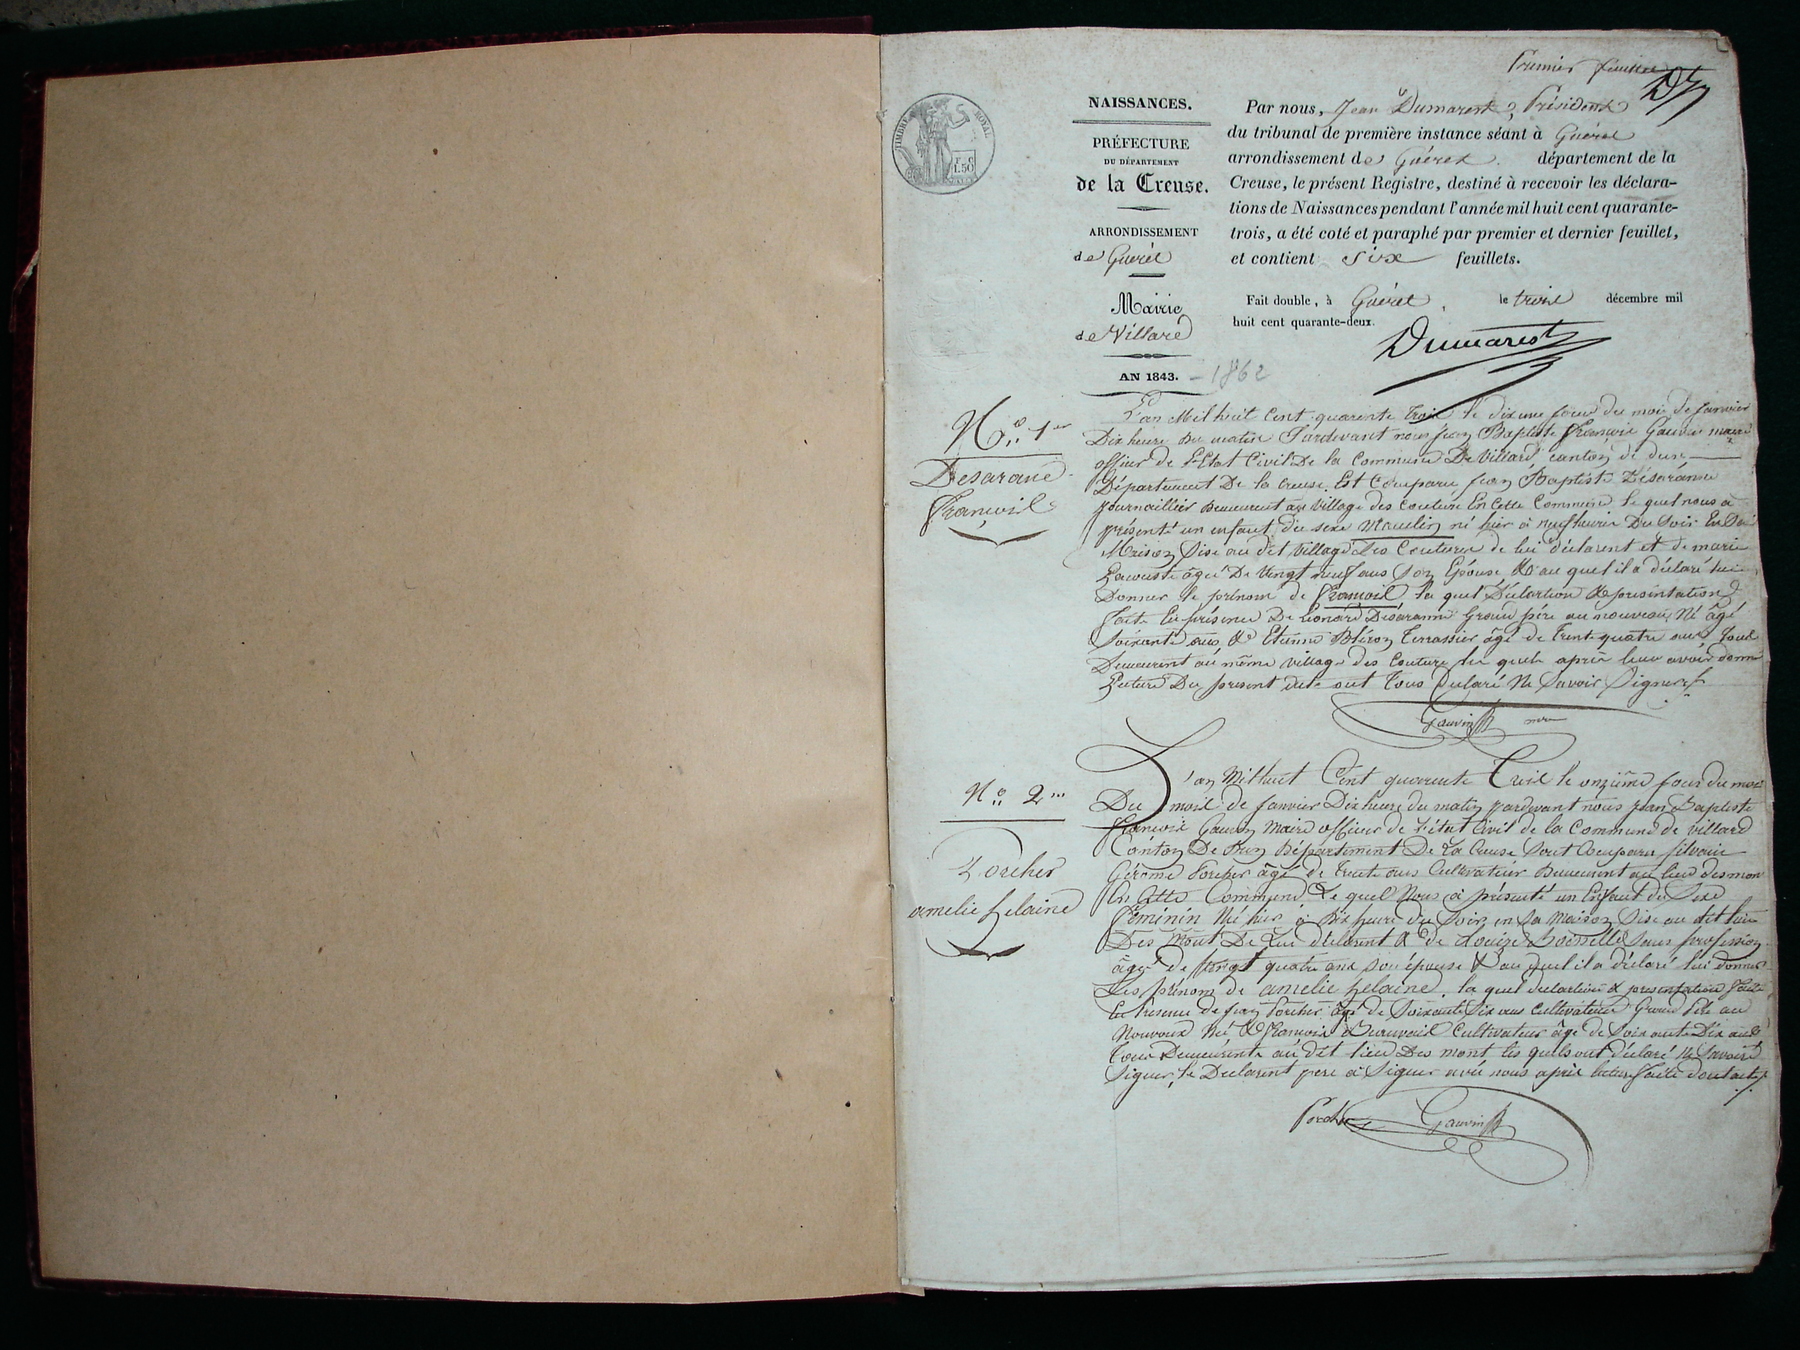 Premier feuillet
TIMBRE ROYAL
F. C.
1.50
NAISSANCES.
PRÉFECTURE
DU DÉPARTEMENT
de la Creuse.
ARRONDISSEMENT
de Guéret
Mairie
de Villard
AN 1843. - 1862
Par nous, Jean Dumarest, Président
du tribunal de première instance séant à Guéret
arrondissement de Guéret département de la
Creuse, le présent Registre, destiné à recevoir les déclara-
tions de Naissances pendant l'année mil huit cent quarante-
trois, a été coté et paraphé par premier et dernier feuillet,
et contient six feuillets.
Fait double, à Guéret, le trois décembre mil
huit cent quarante-deux.
Dumarest
No. 1er
Desarane
François
L'an Mil huit Cent quarente trois le dixeme jour du mois de janvier
Dix heure du matin Pardevant nous jean Baptiste François Gauvin maire
officier de l'Etat Civil De la Commune De Villard canton de dun
Département De la Creuse. Est Comparu jean Baptiste Désarane
journaillier Demeurent au village des couture En Cette Commune le quel nous a
présenté un enfant du sexe Masculin né hier à neuf heure Du Soir En Sa
Maison Sise au dit village Des Couture de lui déclarent et de marie
âgée De Vingt neuf ans Son Epouse & au quel il a déclaré lui
Donner le prénom de François la quel Déclartion & presentation
faite En présence De Léonard Désaranne Grand père au nouveau Né âgé
Soixante ans & Etienne Terrassier âgé de Trente quatre ans Tous
Demeurent au même village des Couture les quels après leur avoir donné
Lecture Du présent acte ont Tous Déclaré Ne Savoir Signer
Gauvin mre
No. 2me
Porcher
amelie helaine
L'an Mil huit Cent quarente Trois le onzième jour du mois
Du mois de janvier Dix heure du matin pardevant nous jean Baptiste
François Gauvin Maire officier de l'état Civil de la Commune de Villard
Canton De Dun Département De La Creuse Sont Comparu Silvain
Gérome Porcher âgé de trente ans Cultivateur Demeurent au lieu des mon
En Cette Commune Le quel Nous a présenté un Enfant du Sexe
Féminin Né hier à Dix heure du Soir en Sa Maison Sise au dit lieu
Des Mont De Lui déclarent & de Louize Sans profession
âgé de Vingt quatre ans son épouse & au quel il a déclaré lui donner
Les prénom de amelie helaine. la quel declartion & presentation faite
En Presence de jean Porcher âgé de Soixante Dix ans Cultivateur Grand Père au
Nouveau Né & François Cultivateur âgé de Soixante Dix ans
Tous Demeurents au dit lieu Des mont les quels ont déclaré Ne Savoir
Signer, le Declarent pere à Signer avec nous après lecture faite dont acte
Porcher Gauvin